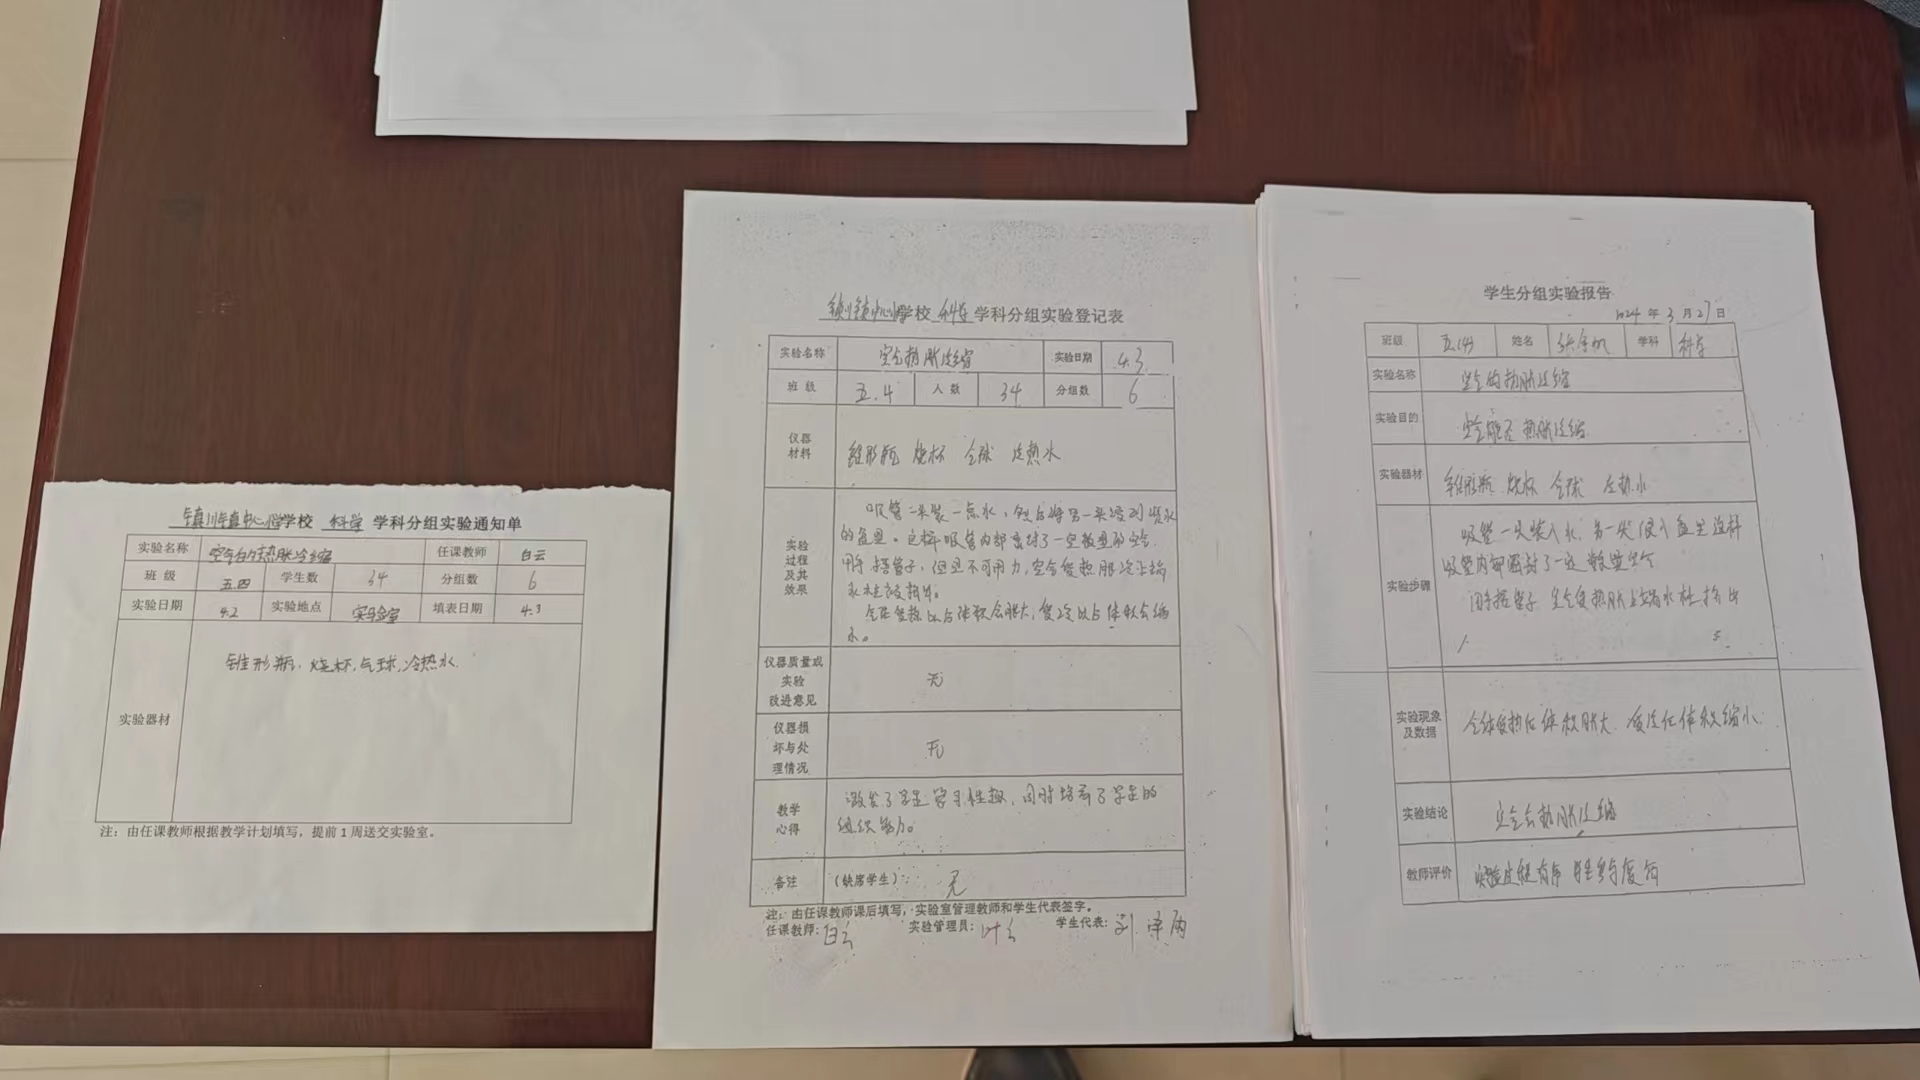 镇川镇中心小学校 科学 学科分组实验通知单
实验名称 空气的热胀冷缩 任课教师 白云
班 级 五四 学生数 34 分组数 6
实验日期 4.2 实验地点 实验室 填表日期 4.3
实验器材 锥形瓶、烧杯,气球,冷热水.
注:由任课教师根据教学计划填写,提前1周送交实验室。
镇川镇中心小学校 科学 学科分组实验登记表
实验名称 空气热胀冷缩 实验日期 4.3
班 级 五.4 人 数 34 分组数 6
仪器材料 锥形瓶 烧杯 气球 冷热水
实验过程及其效果
吸管一头装一点水,然后将另一头浸到
的。这样吸管内部密封了一定数量的空气
用手捂管子,但是不可用力,空气受热胀
气体受热以后体积会胀大,受冷以后体积会缩
小。
仪器质量或实验改进意见 无
仪器损坏与处理情况 无
教学心得
激发了学生学习性趣,同时培养了学生的
组织能力。
备注 (缺席学生): 无
注:由任课教师课后填写,实验室管理教师和学生代表签字。
任课教师:白云 实验管理员:叶 学生代表:刘
学生分组实验报告
2024 年 3 月 27 日
班级 五(4) 姓名 张 学科 科学
实验名称 空气的热胀冷缩
实验目的 空气能否热胀冷缩
实验器材 锥形瓶 烧杯 气球 冷热水
实验步骤
吸管一头装入水,另一头 这样
吸管内部密封了一定数量空气
用手捂管子 空气受热胀上端水柱
实验现象及数据 气体受热后体积胀大,受冷后体积缩小.
实验结论 空气会热胀冷缩
教师评价 实验过程有序